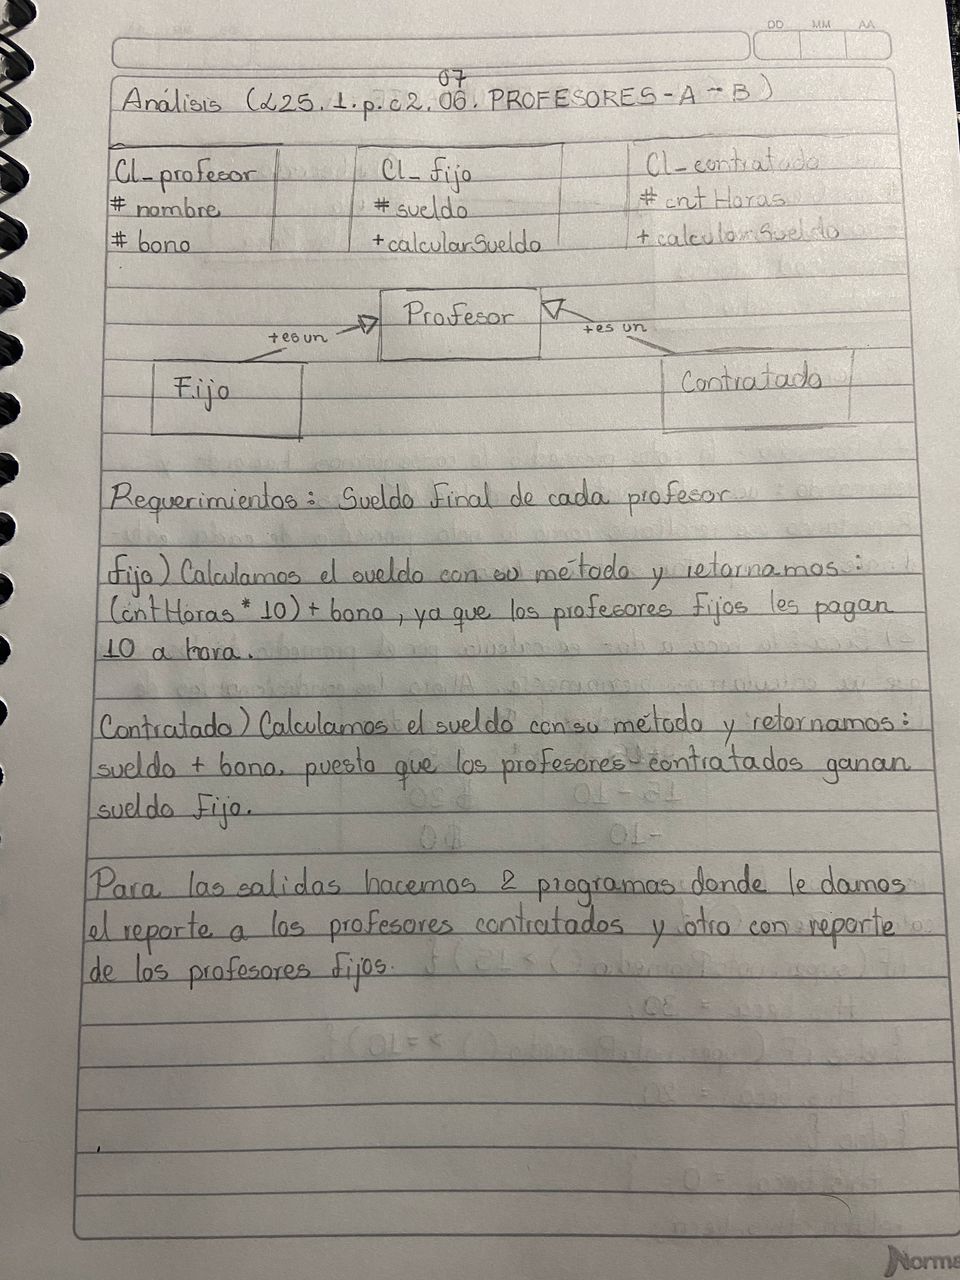 DD MM AA
07
Análisis (L25.1.p.c2.06.PROFESORES-A-B)
Cl_profesor Cl_fijo Cl_contratado
# nombre # sueldo # cntHoras
# bono +calcularSueldo + calcularSueldo
Profesor
+es un +es un
Fijo Contratado
Requerimientos: Sueldo Final de cada profesor
fijo) Calculamos el sueldo con su método y retornamos:
(cntHoras * 10) + bono, ya que los profesores fijos les pagan
10 a hora.
Contratado) Calculamos el sueldo con su método y retornamos:
sueldo + bono, puesto que los profesores contratados ganan
sueldo fijo.
Para las salidas hacemos 2 programas donde le damos
el reporte a los profesores contratados y otro con reporte
de los profesores fijos.
Norma